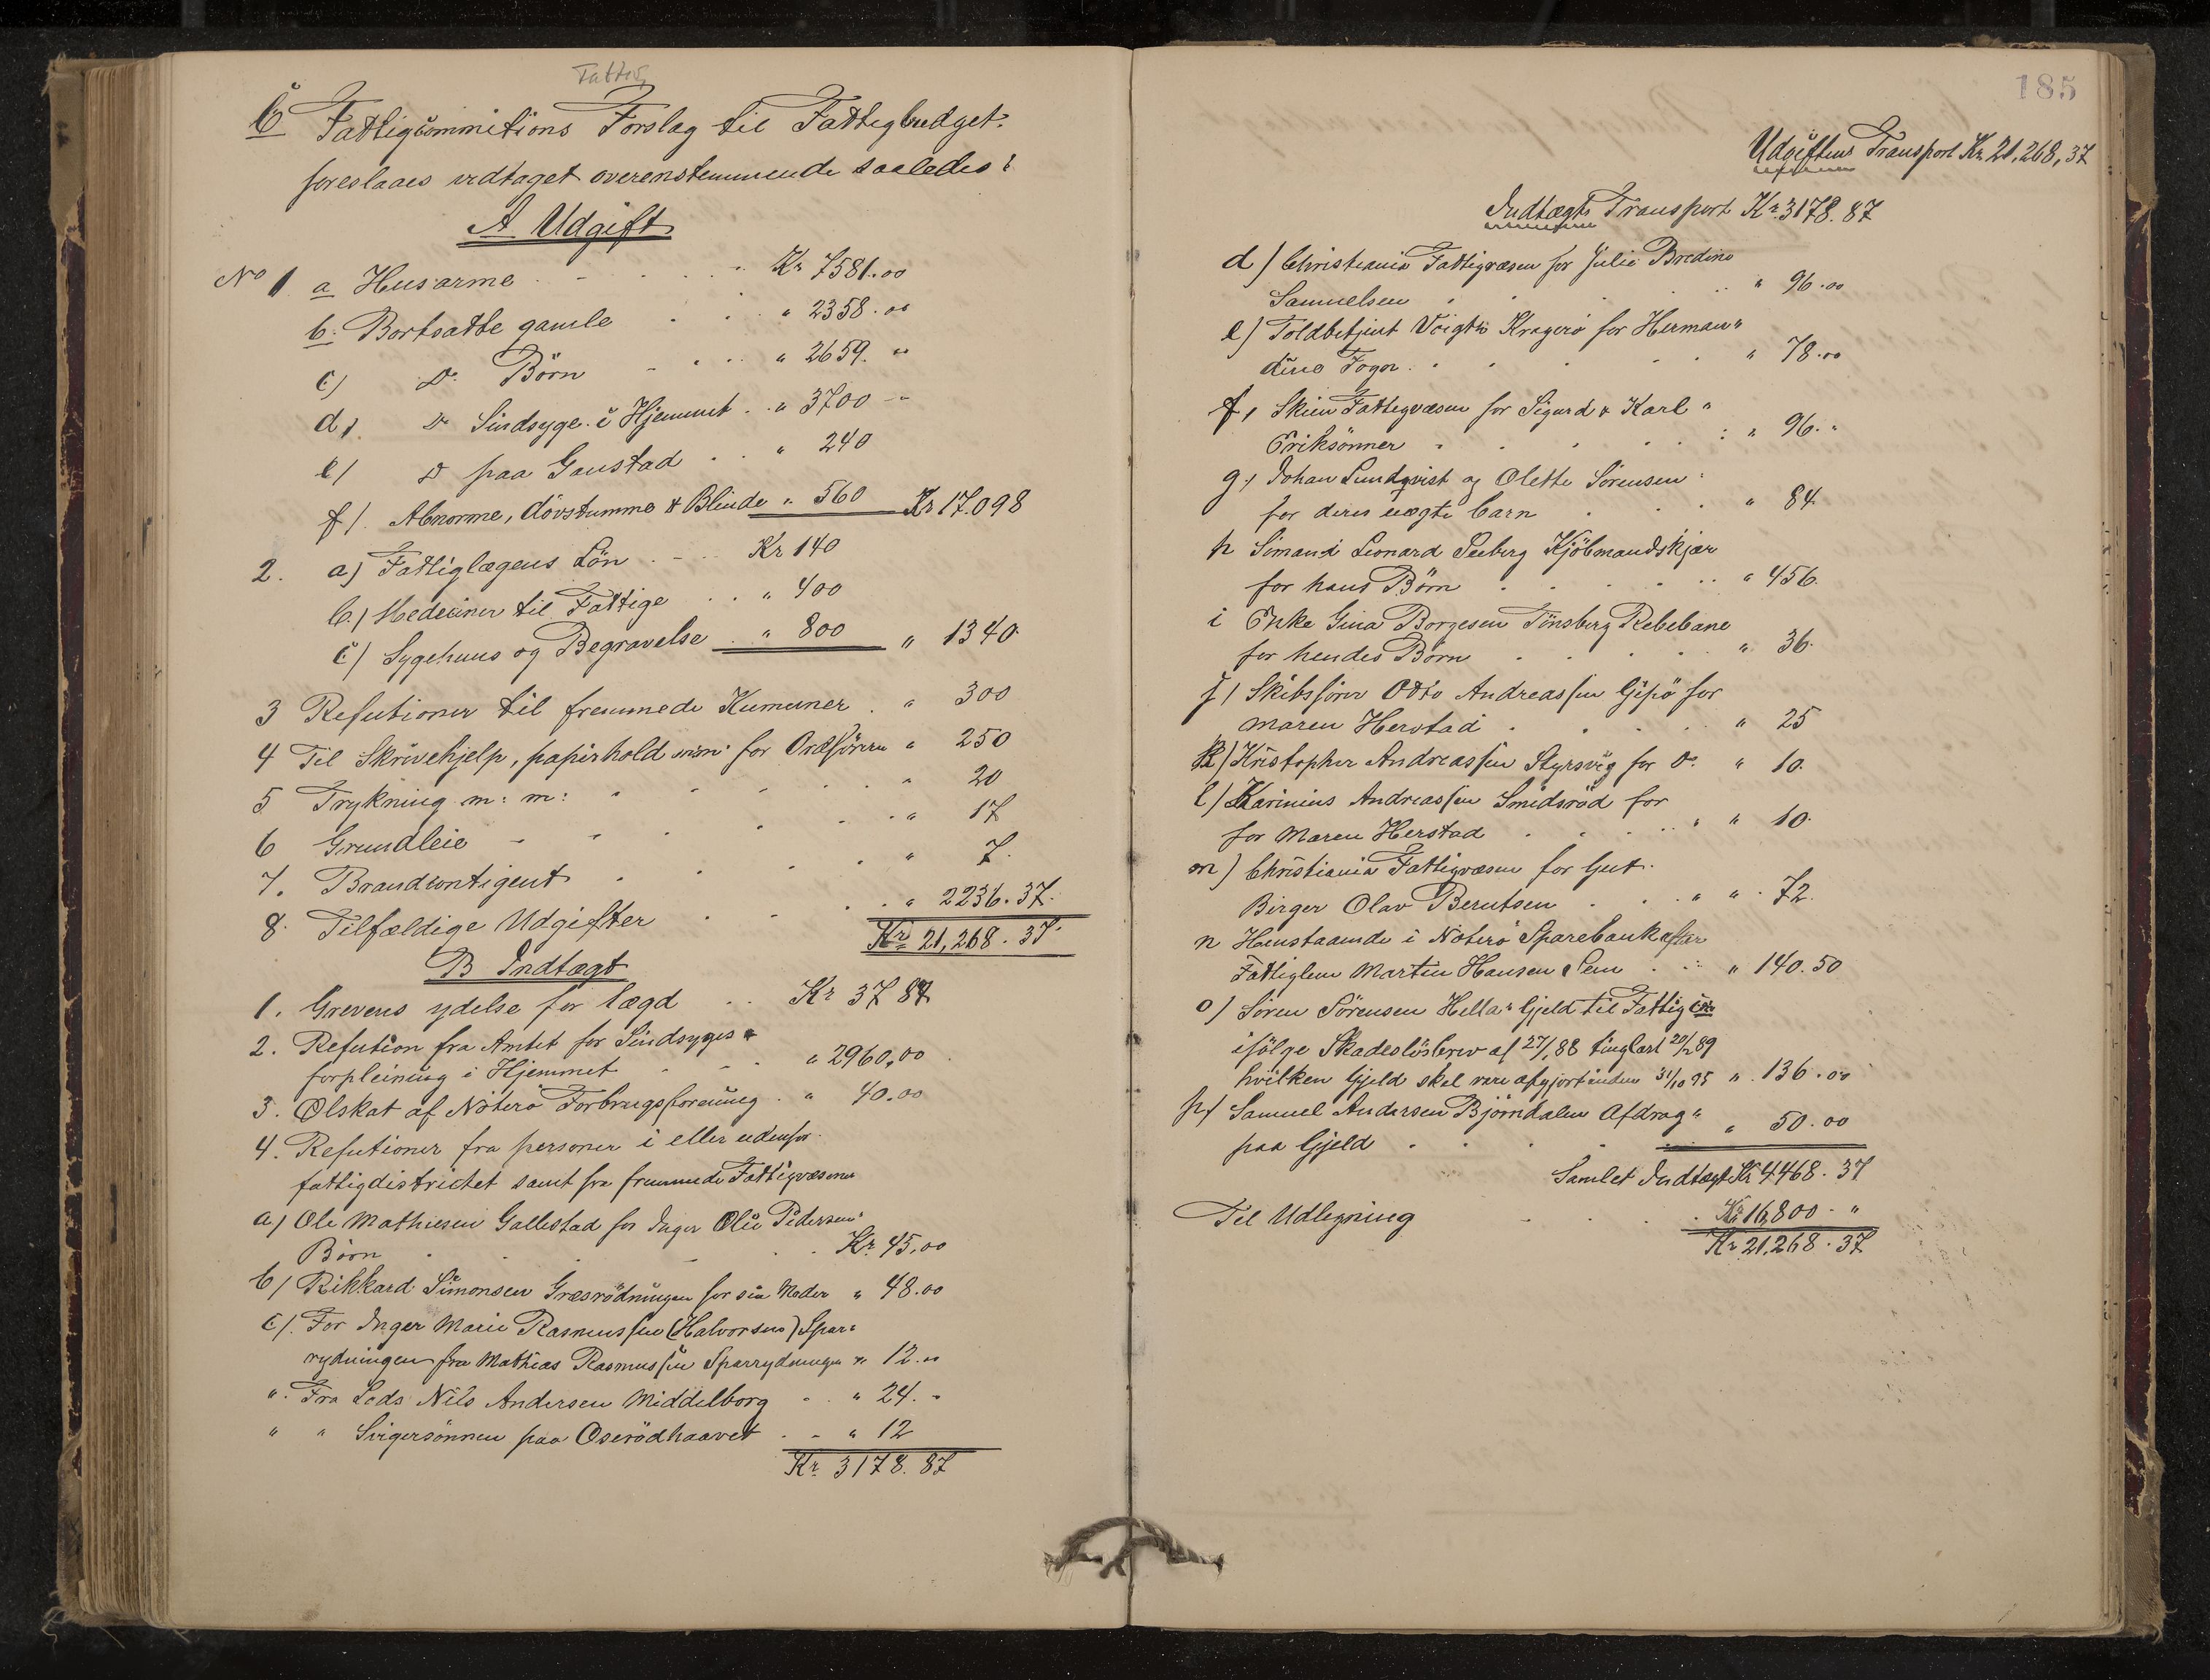 Fattig
6 Fattigcommitions Forslag til Fattigbudget
foreslaaes vedtaget overenstemmende saaledes:
A Udgift
No 1 a Husarme Kr 7581.00
b. Bortsatte gamle " 2358.00
c) Do Börn " 2659. "
d). Do Sindsyge i Hjemmet " 3700 "
e) Do paa Gaustad " 240
f). Abnorme, dövstumme & Blinde " 560 Kr 17.098
2. a) Fattiglægens Lön Kr 140
b) Mediciner til Fattige " 400
c) Sygehuus og Begravelse " 800 " 1340
3 Refutioner til fremmede Kumuner " 300
4 Til Skrivehjelp, papirhold m:m: for Ordföreren " 250
5 Trykning m: m: " 20
6 Grundleie " 17
7. Brandcontigent " 7.
8. Tilfældige Udgifter " 2236.37.
Kr 21,268.37
B Indtægt
1. Grevens ydelse for lægd Kr 37 87
2. Refution fra Amtet for Sindsyges
forpleining i Hjemmet " 2960,00
3. Ölskat af Nöterö Forbrugsforening " 40.00
4. Refutioner fra personer i eller udenfor
fattigdistrictet samt fra fremmede Fattigvæsener
a) Ole Mathiesen Gallestad for Inger Olie Pedersens
Börn Kr. 45,00
b) Rikkard Simonsen Græsrödningen for sin Moder " 48.00
c). For Inger Marie Rasmussen (Halvorsens) Spar=
rydningen fra Mathias Rasmussen Sparrydningen " 12.00
" Fra Lods Nils Andersen Middelborg " 24. "
" " Svigersönnen paa Oserödhaavet " 12
Kr. 3178.87
185
Udgiftens Transport Kr 21,268,37
Indtægts Transport Kr. 3178.87
d) Christiania Fattigvæsen for Julie Bredine
Samuelsen " 96.00
e) Toldbetjent Voigt Kragerö for Herman"
dine Foyn " 78.00
f, Skien Fattigvæsen for Sigurd & Karl "
Eriksönner " 96. "
g, Johan Lundqvist og Olette Sörensen
for deres uægte barn " 84.
h Simand Leonard Seeberg Kjöbmandskjær
for hans Börn " 456.
i Enke Gina Borgesen Tönsberg Rebebane
for hendes Börn " 36.
j) Skibsförer Otto Andreassen Gipö for
Maren Herstad " 25
k) Kristopher Andreassen Styrsvig for Do " 10.
l) Karinius Andreassen Smidsröd for
for Maren Herstad " 10.
m) Christiania Fattigvæsen for Gut
Birger Olav Berntsen " 72.
n Henstaaende i Nöterö Sparebank efter
Fattiglem Martin Hansen Sem " 140.50
o) Sören Sörensen Hella" Gjeld til Fattig
ifölge Skadeslösbrev af 27/1 88 tinglæst 20/2 89
hvilken Gjeld skal være afgjort inden 31/10 95 " 136.00
p) Samuel Andersen Björndalen Afdrag "
paa Gjeld " 50.00
Samlet Indtægt Kr 4468.37
Til Udligning Kr 16,800 - "
Kr 21,268.37